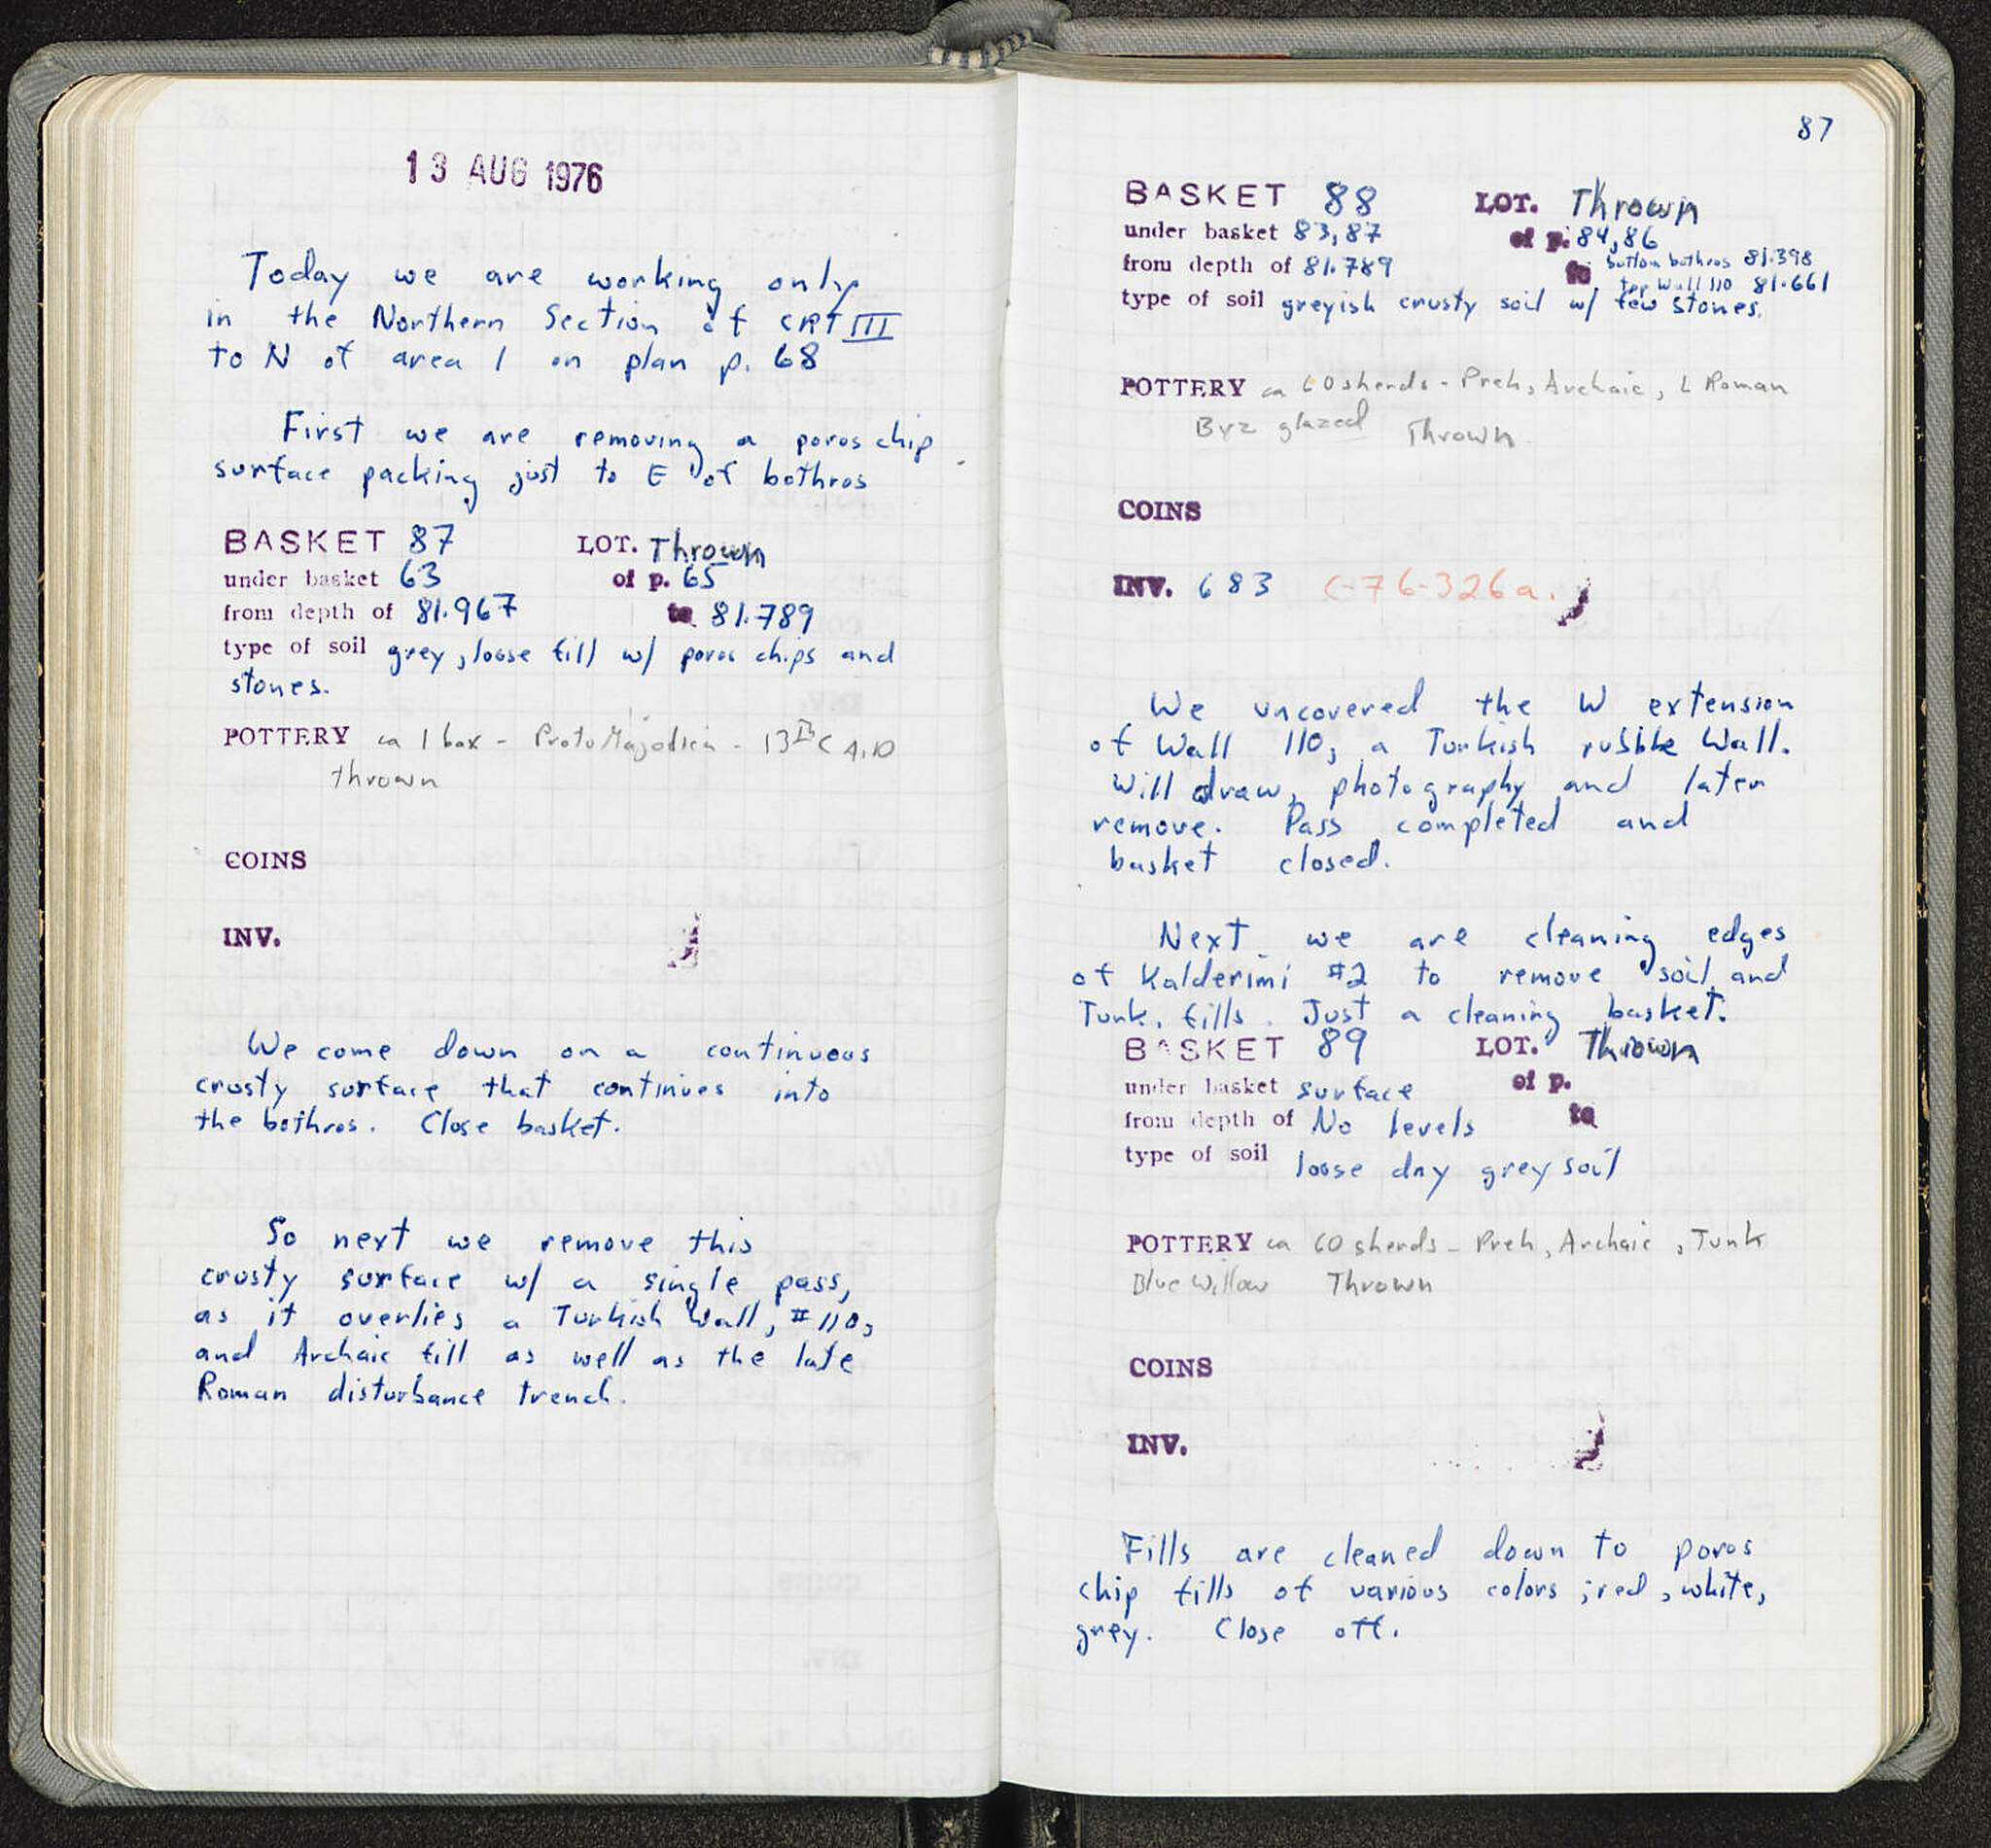 13 AUG 1976
Today we are working only
in the Northern Section of CRT III
to N of area 1 on plan p. 68
First we are removing a poros chip
surface packing just to E of bothros
BASKET 87 LOT. Thrown
under basket 63 of p. 65
from depth of 81.967 to 81.789
type of soil grey, loose fill w/ poros chips and
stones.
POTTERY ca 1 box - ProtoMajolica - 13th C A.D
thrown
COINS
INV.
We come down on a continuous
crusty surface that continues into
the bothros. Close basket.
So next we remove this
crusty surface w/ a single pass,
as it overlies a Turkish Wall, #110,
and Archaic fill as well as the late
Roman disturbance trench.
87
BASKET 88 LOT. Thrown
under basket 83,87 of p. 84,86
from depth of 81.789 to bottom bothros 81.398
top Wall 110 81.661
type of soil greyish crusty soil w/ few stones.
POTTERY ca 60 sherds - Preh, Archaic, L Roman
Byz glazed Thrown
COINS
INV. 683 C-76-326a.
We uncovered the W extension
of Wall 110, a Turkish rubble Wall.
Will draw, photography and later
remove. Pass completed and
basket closed.
Next we are cleaning edges
of Kalderimi #2 to remove soil and
Turk. fills. Just a cleaning basket.
BASKET 89 LOT. Thrown
under basket surface of p.
from depth of No levels to
type of soil loose dry grey soil
POTTERY ca 60 sherds - Preh, Archaic, Turk
Blue Willow Thrown
COINS
INV.
Fills are cleaned down to poros
chip fills of various colors ; red, white,
grey. Close off.